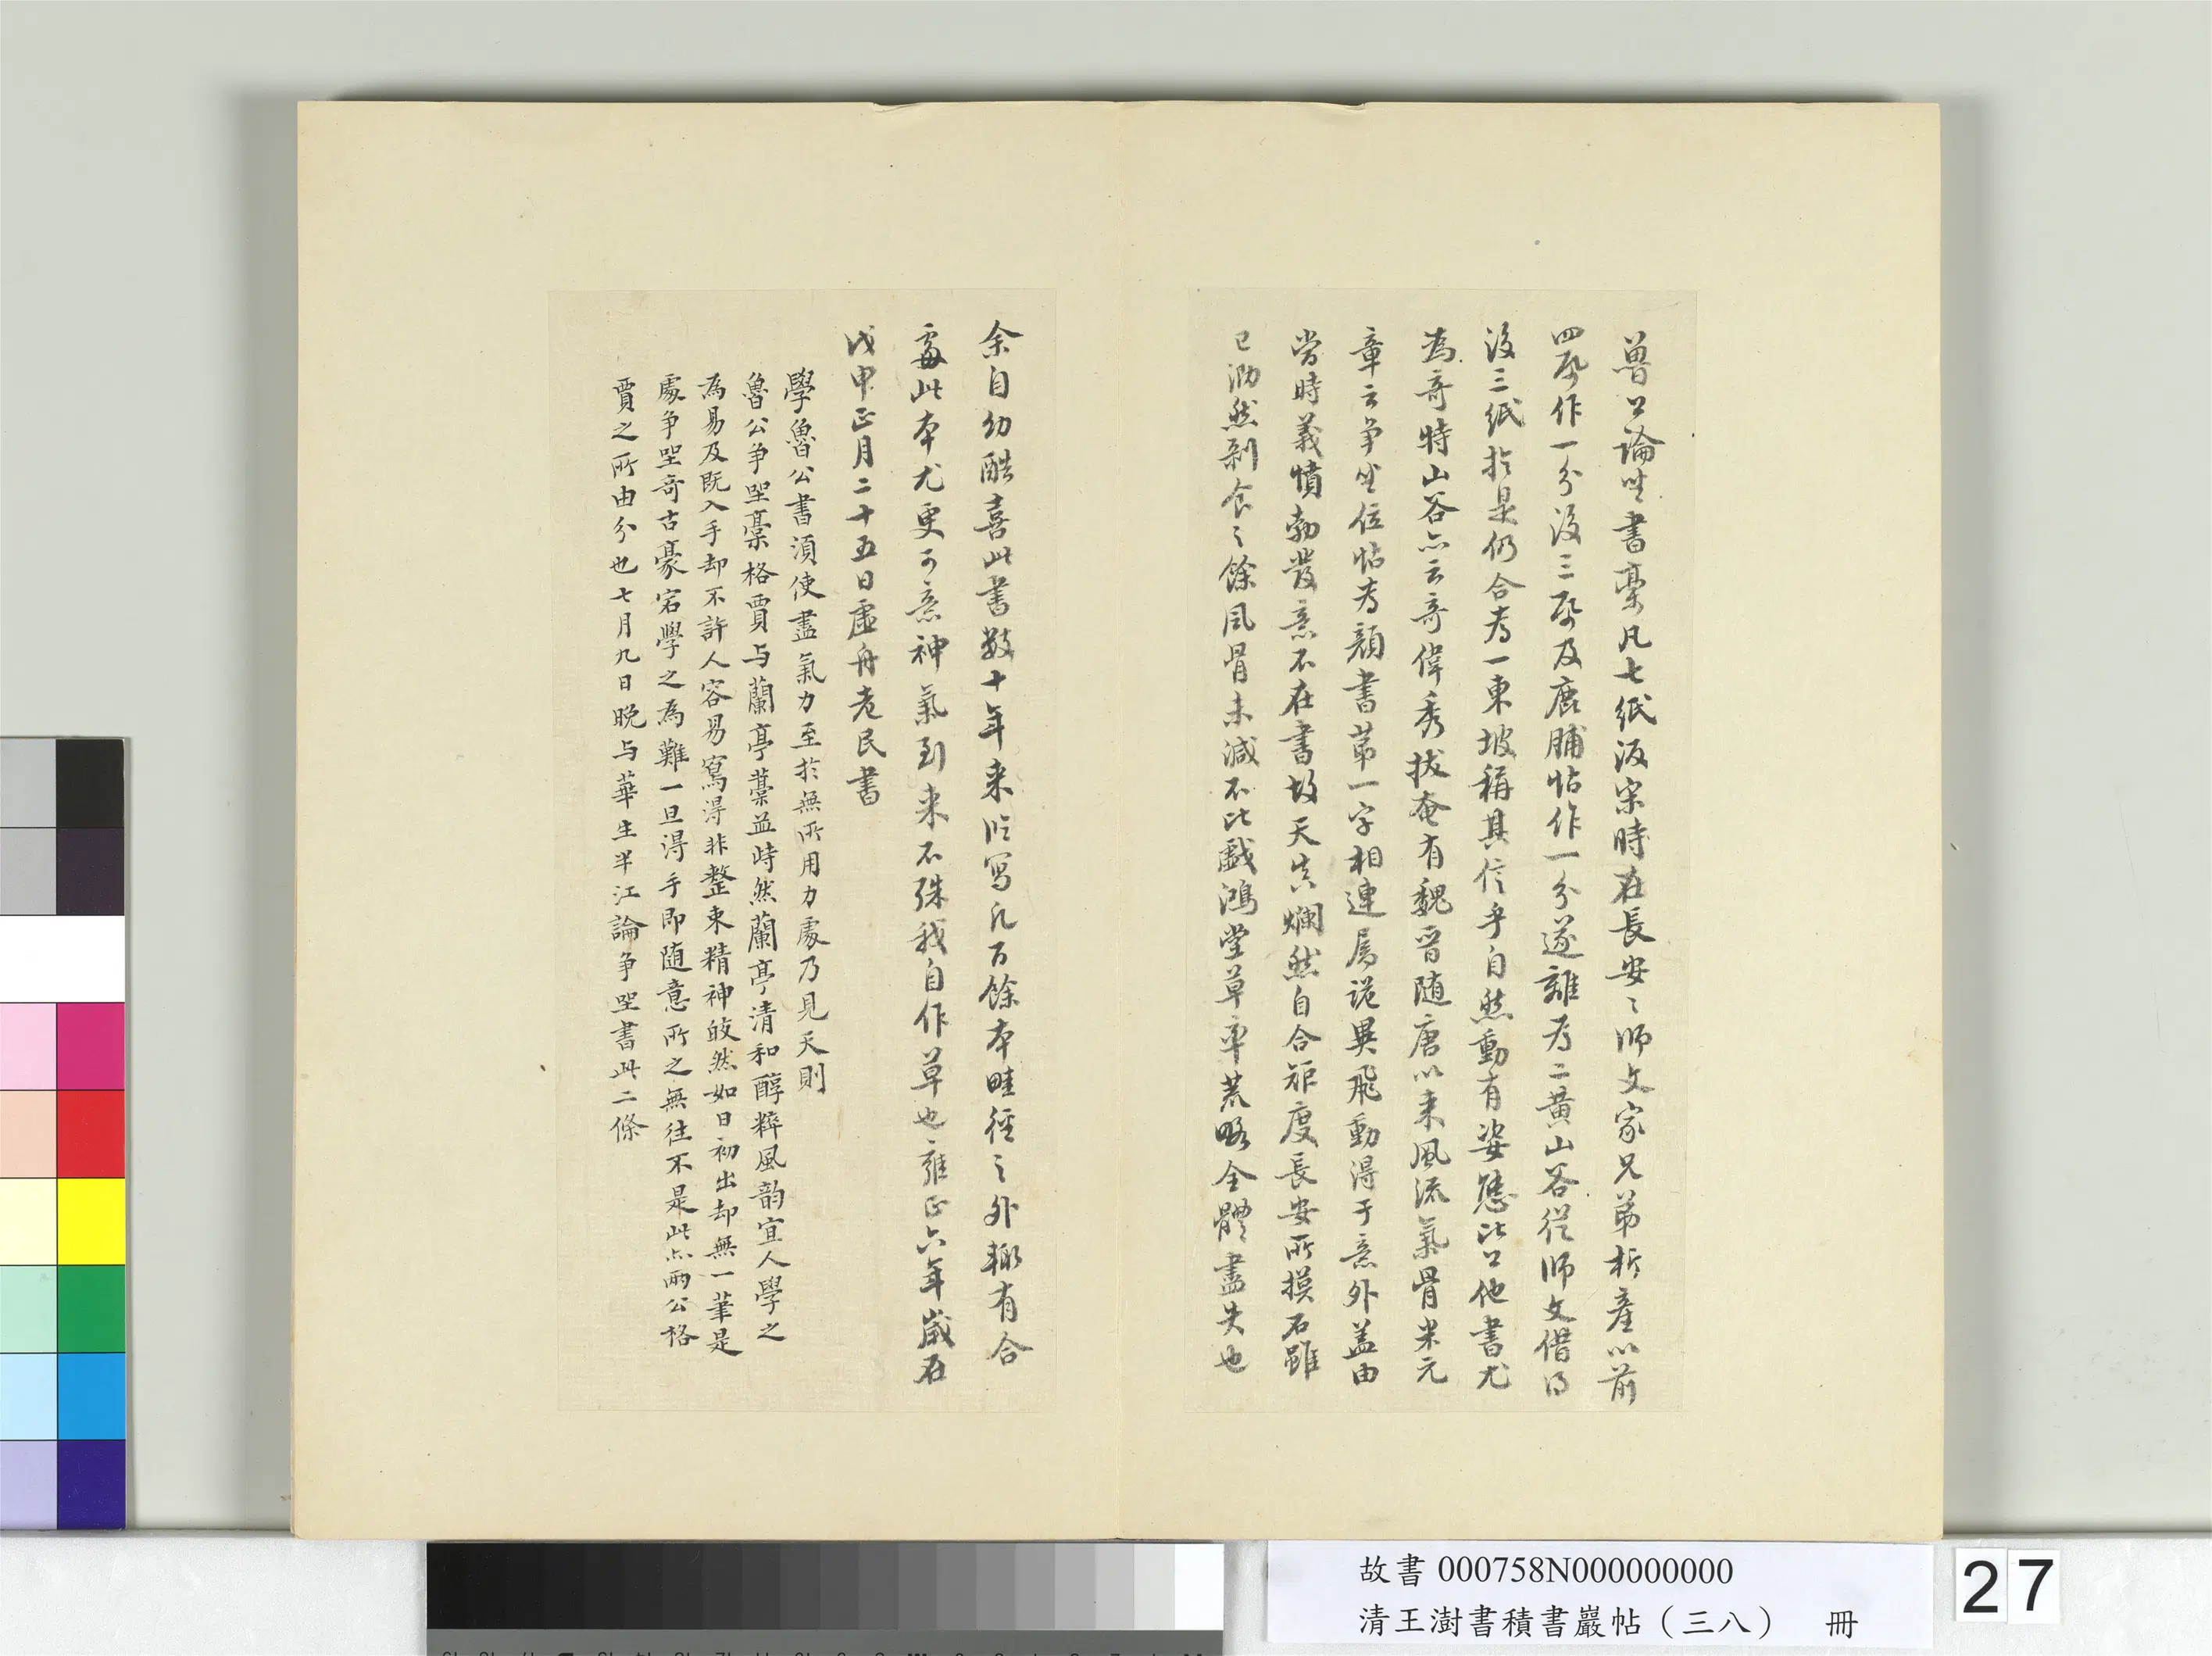 魯公論坐書稾凡七紙後宋時在長安〻師文家兄弟析產以前
四紙作一分後三紙及鹿脯帖作一分遂離為二黃山谷從師文借得
後三紙於是仍合為一東坡稱其信手自然動有姿態比公他書尤
為奇特山谷亦云奇偉秀拔奄有魏晉隨唐以來風流氣骨米元
章云爭坐位帖為顏書第一字相連屬詭異飛動得于意外蓋由
當時義憤勃發意不在書故天真爛然自合矩度長安所摸石雖
已泐然剝食之餘風骨未減不比戲鴻堂草率荒略全體盡失也
余自幼酷喜此書數十年來臨寫凡百餘本畦徑之外輒有合
處此本尤更可意神氣到來不殊我自作草也雍正六年歲在
戊申正月二十五日虛舟老民書
學魯公書須使盡氣力至於無所用力處乃見天則
魯公爭坐稾格賈与蘭亭藁並峙然蘭亭清和醇粹風韵宜人學之
為易及既入手却不許人容易寫得非整束精神皎然如日初出却無一筆是
處爭坐奇古豪宕學之為難一旦得手即随意所之無往不是此亦兩公格
賈之所由分也七月九日晚与華生半江論爭坐書此二條
故書 000758N000000000
清王澍書積書巖帖（三八） 冊
27